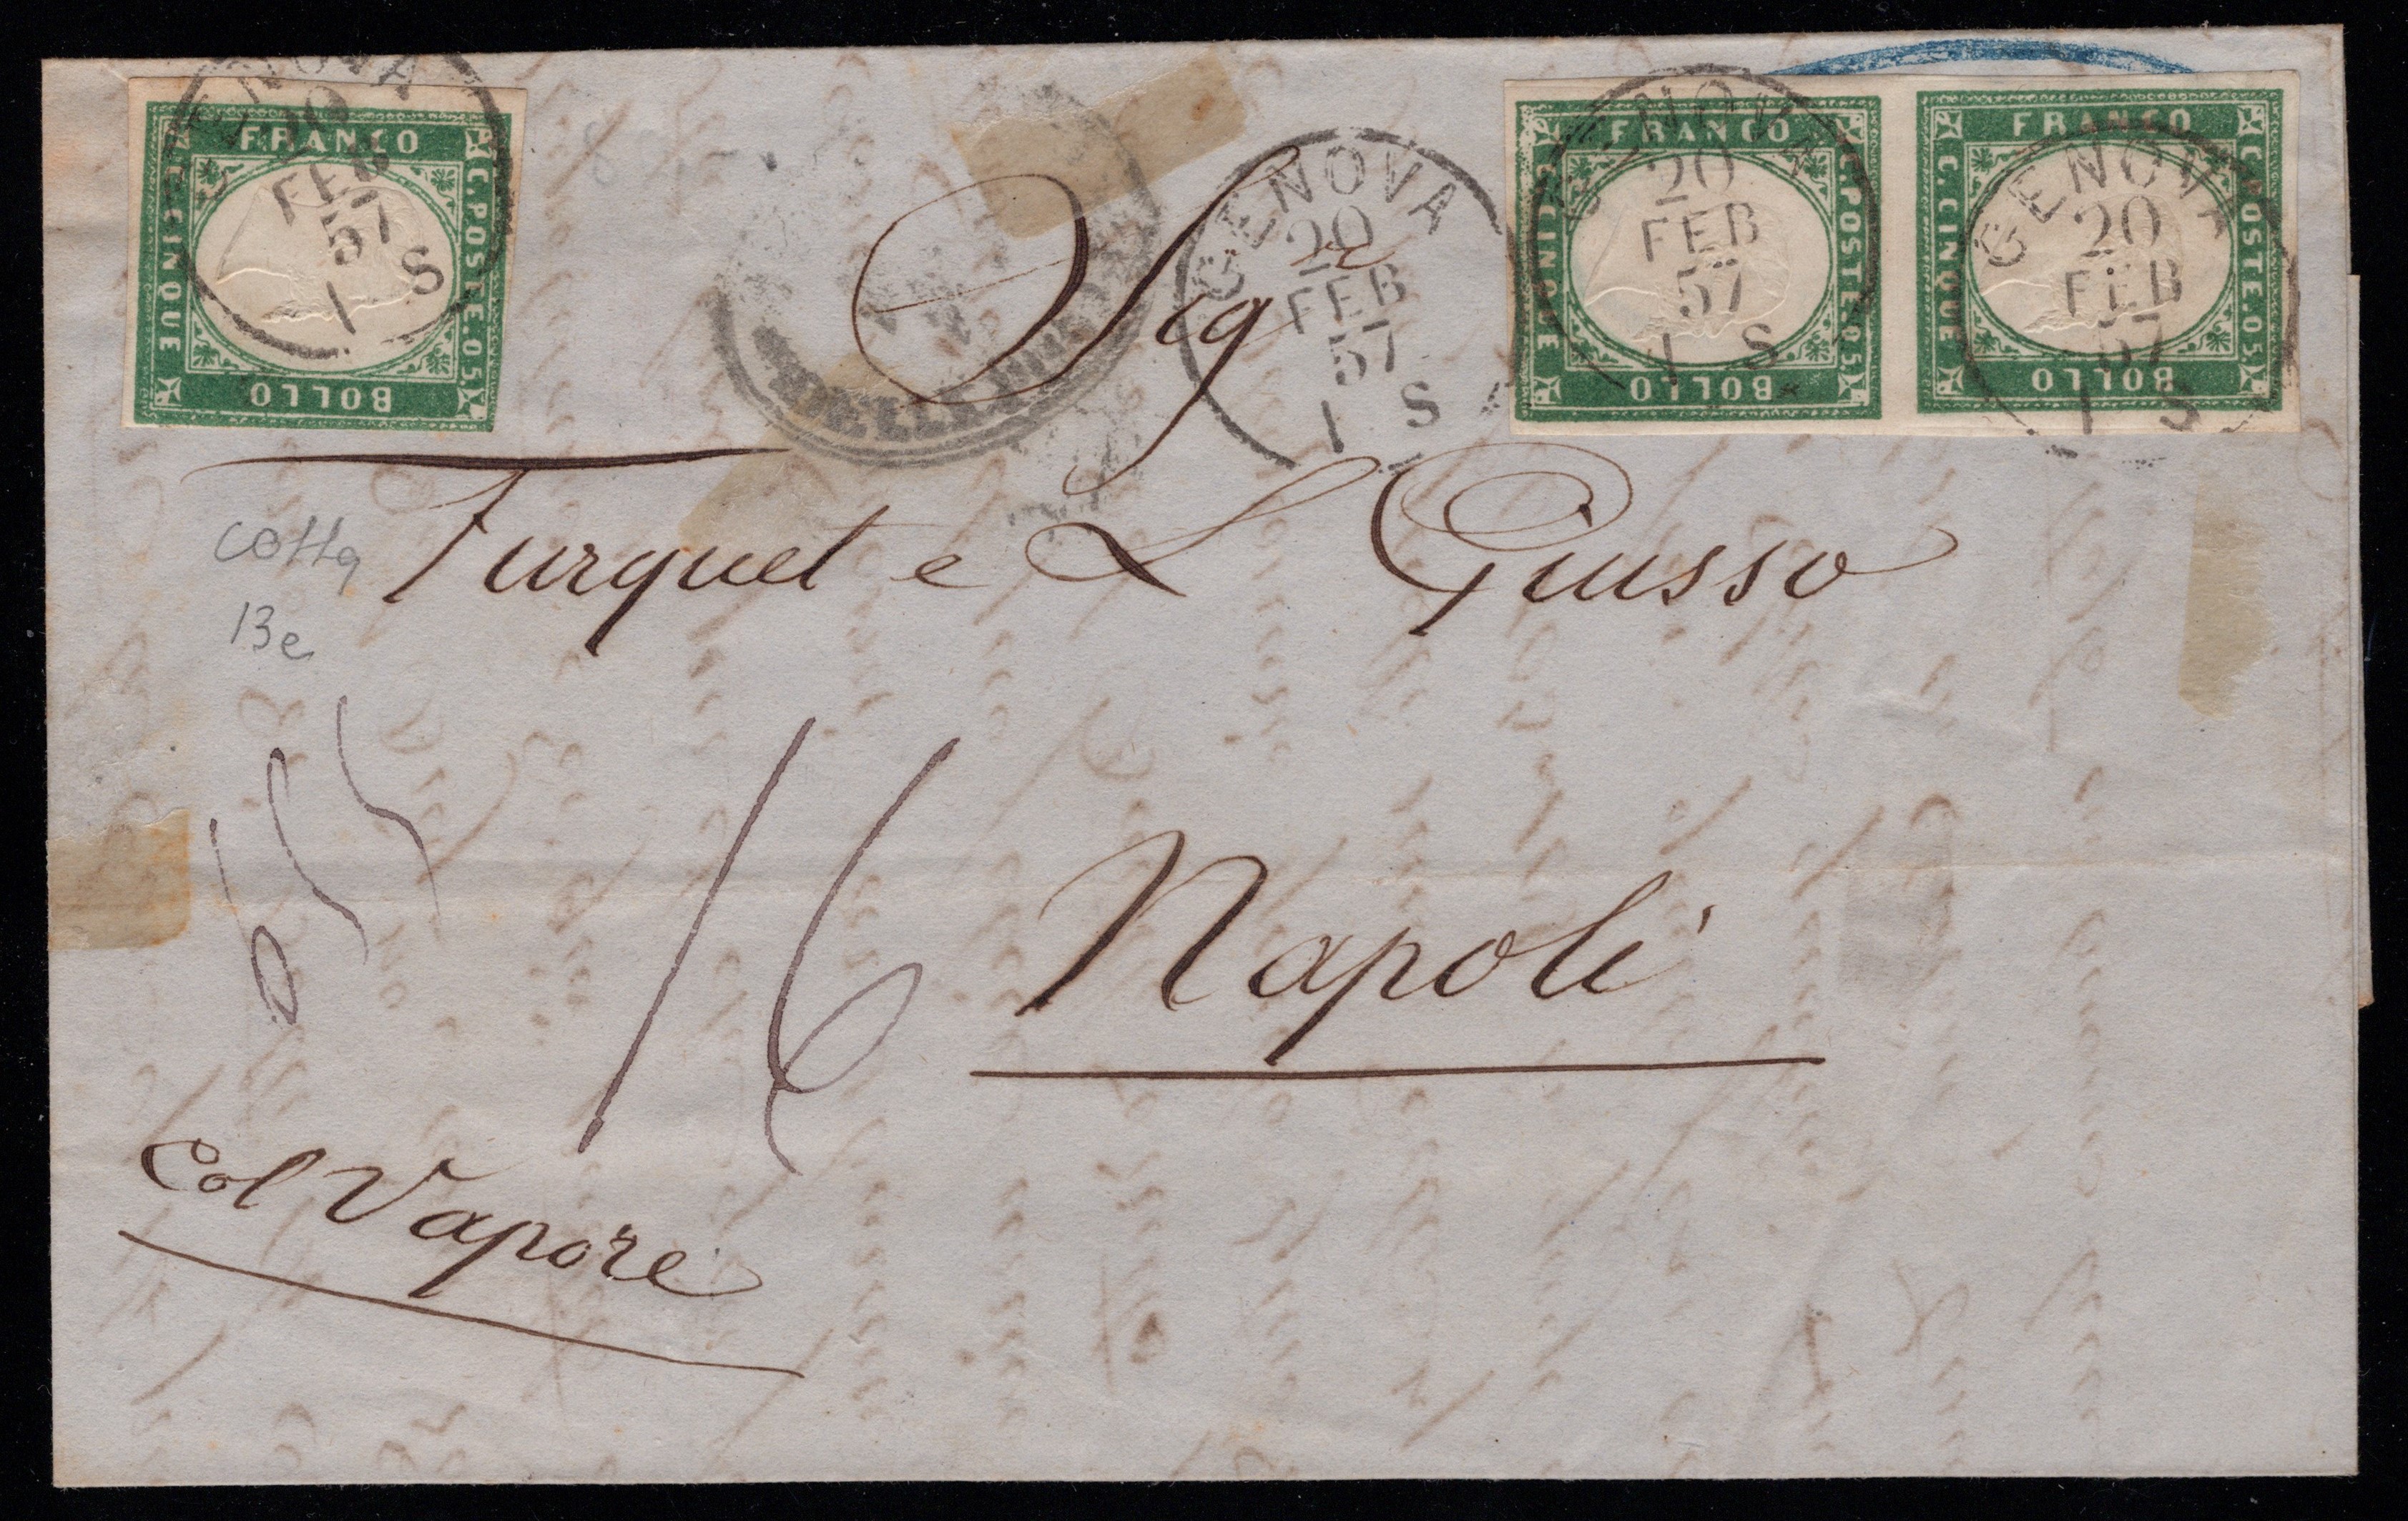 GENOVA
20
FEB
57
1 S
FRANCO
C. POSTE. 05.
BOLLO
CINQUE
GENOVA
20
FEB
57
1 S
GENOVA
20
FEB
57
1 S
FRANCO
C. POSTE. 05.
BOLLO
CINQUE
GENOVA
20
FEB
57
1 S
FRANCO
C. POSTE. 05.
BOLLO
C. CINQUE
DELLE
Sigr
Furquet e L Giusso
cotta
13e
16
Napoli
Col Vapore